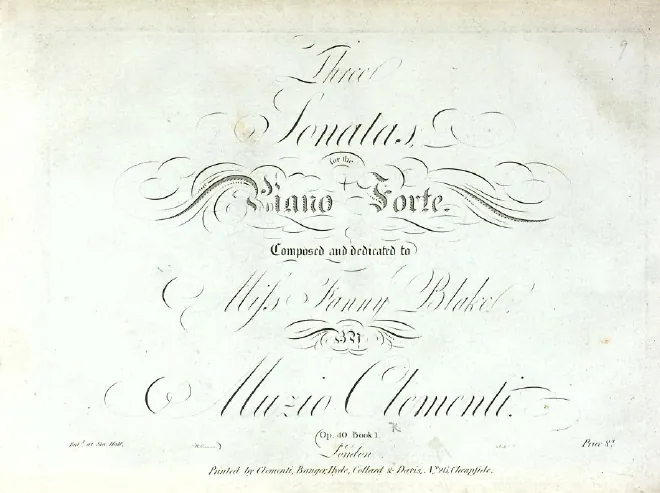 9
Three
Sonatas,
for the
Piano Forte.
Composed and dedicated to
Miſs Fanny Blake.
BY
Muzio Clementi.
Op. 40. Book 1.
Ent.d at Sta. Hall. Price 8s
London
Printed by Clementi, Banger, Hyde, Collard & Davis, No. 26, Cheapſide.